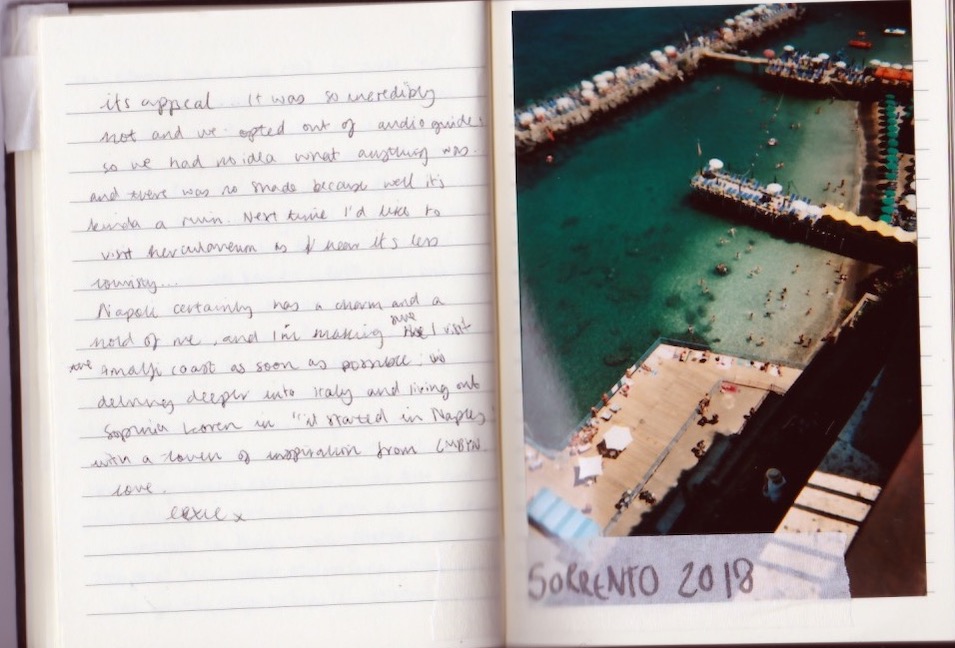 its appeal... It was so incredibly
hot and we opted out of audioguides
so we had no idea what anything was.
and there was no shade because well it's
kinda a ruin. Next time I'd like to
visit herculaneum as I hear it's less
touristy...
Napoli certainly has a charm and a
hold of me, and I'm making sure I visit
the Amalfi coast as soon as possible;
delving deeper into Italy and living out
Sophia Loren in "it started in Naples
with a of inspiration from CMBYN
love.
x
SORRENTO 2018